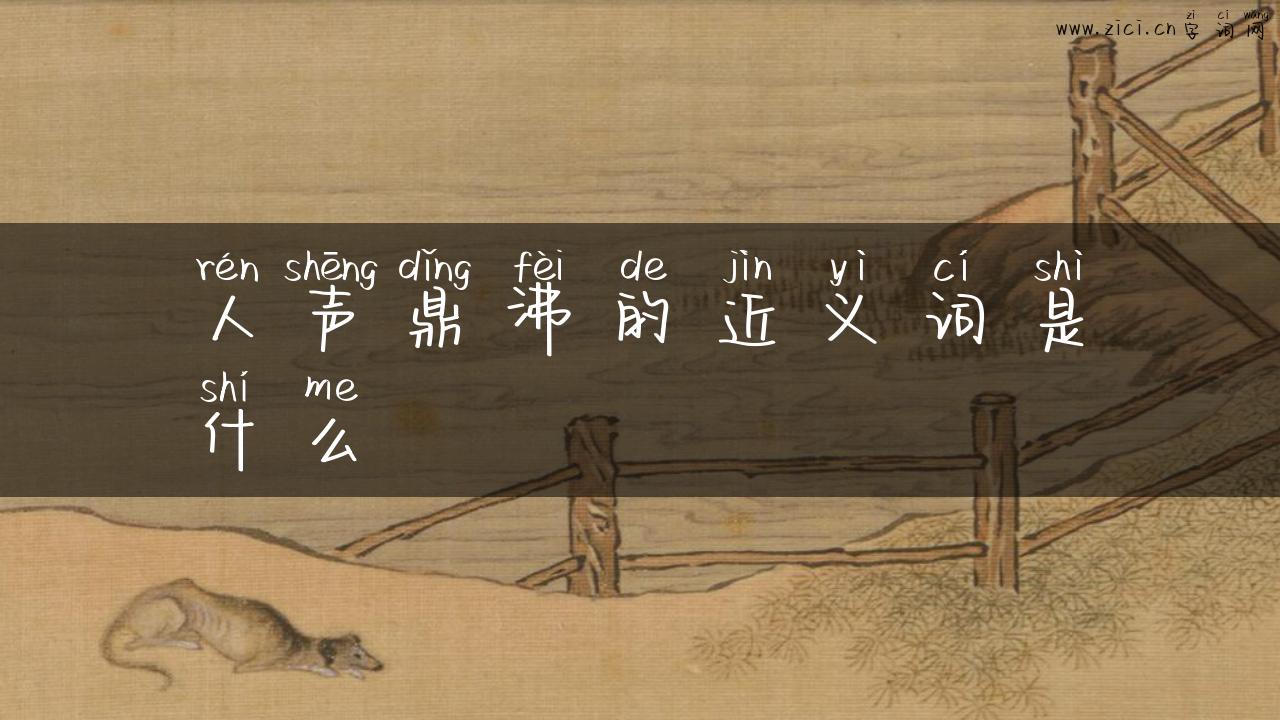 zi ci wang
www.zici.cn 字词网
rén shēng dǐng fèi de jìn yì cí shì
人声鼎沸的近义词是
shí me
什么